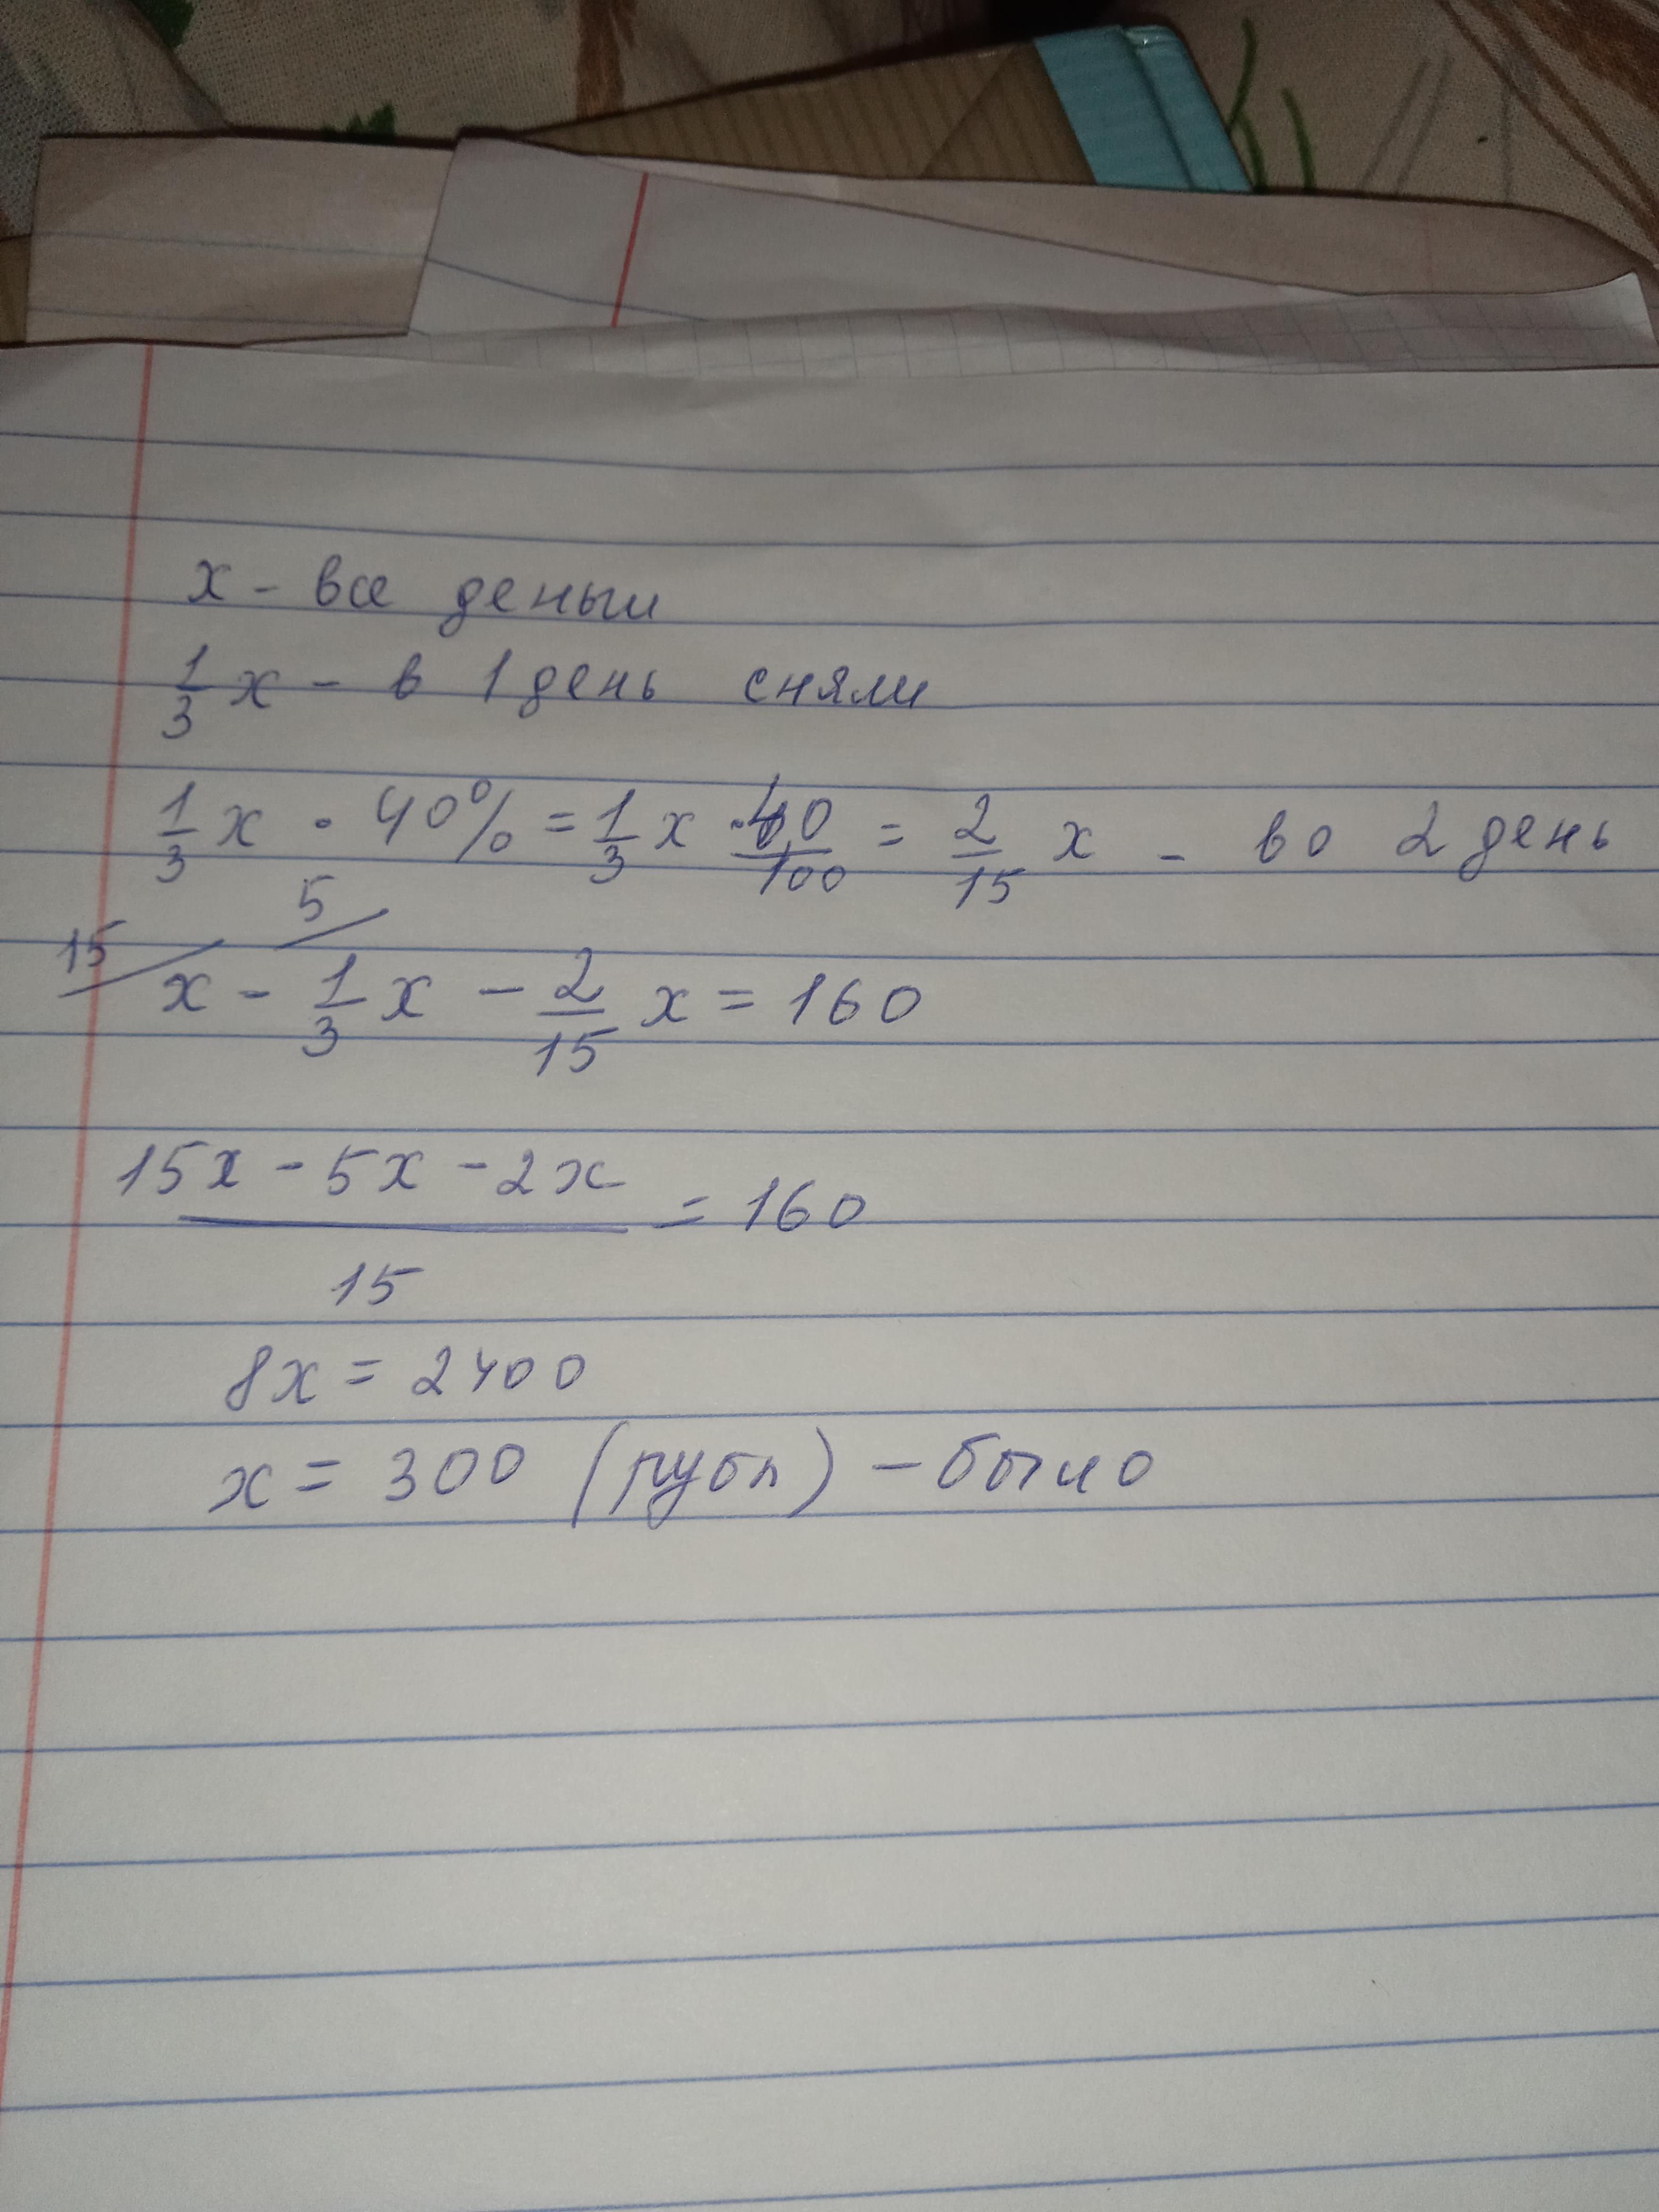 x - все деньги
1/3 x - в 1 день сняли
1/3 x · 40% = 1/3 x · 40/100 = 2/15 x - во 2 день
15/ x - 5/ 1/3 x - 2/15 x = 160
(15x - 5x - 2x)/15 = 160
8x = 2400
x = 300 (рубл) - было